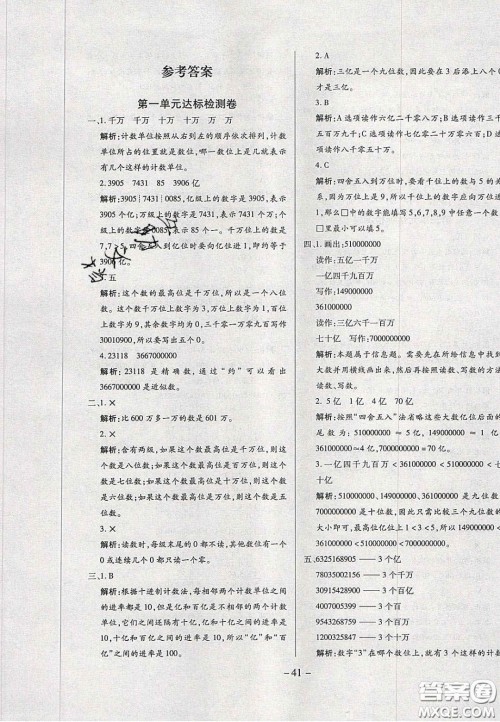 参考答案
第一单元达标检测卷
一、1.千万 千万 十万 十万 万 万
解析:计数单位按照从右到左的顺序依次排列,计数
单位所占的位置就是数位,哪一数位上是几就表示
有几个这样的计数单位。
2.3905 7431 85 3906亿
解析:3905|7431|0085,亿级上的数字是3905,表
示3905个亿;万级上的数字是7431,表示7431个
万;个级上的数字是0085,表示85个一。千万位是
7,7>5,四舍五入到亿位时要向亿位进1,即约等于
3906亿。
3.五
解析:这个数的最高位是千万位,所以是一个八位
数。这个数的千万位上数字为3,万位上数字为1,百
位上数字为9,其余数位为0,三千零一万零九百写作
30010900,所以要写出五个0。
4.23118 3667000000
解析:23118是精确数,通过“约”可以看出
3667000000是近似数。
二、1.×
解析:比600万多一万的数是601万。
2.×
解析:含有两级,如果这个数最高位是千万位,则这
个数是八位数;如果这个数的最高位是百万位,则这
个数是七位数;如果这个数的最高位是十万位,则这
个数是六位数;如果这个数的最高位是万位,则这个
数是五位数。
3.×
解析:读数时,每级末尾的0都不读,其他数位有一个
0或连续几个0都只读一个零。
三、1.B
解析:根据十进制计数法,每相邻两个计数单位之间
的进率都是10,但百和亿不是相邻的两个计数单位,
它们之间的进率不是10;亿和十亿是相邻的计数单
位,十亿和百亿之间的进率是10,所以“亿”和“百
亿”之间的进率是100。
2.A
解析:三亿是一个九位数,因此要在3后添上八个0
才是三亿。
3.B
解析:A选项读作六百七十万八千零五十;B
选项读作七亿零二十万七千零五十;C选项读作
八百七十万。
4.C
解析:四舍五入到万位时,要看千位上的数与5的关
系,
万位上的数字
即可填写5,6,7,8,9
所以□里最大能填9。
四、1.画出:510000000
读作:五亿一千万
一亿四千九百万
写作:149000000
361000000
读作:三亿六千一百万
七十亿 写作:7000000000
解析:本题属于信息题。需要先在所给信息中找出大
数并用横线画出来,然后再按照读数、写数的方法来
读数、写数。
2.5亿 1亿 4亿 70亿
解析:按照“四舍五入”法省略这些大数亿位后面的
数,即510000000≈5亿,149000000≈1亿,
361000000≈4亿,7000000000=70亿。
3.一亿四千九百万<361000000<510000000<七
十亿
解析:510000000,149000000,361000000是九位数,七
十亿是十位数,因此只需比较三个九位数亿位上数的
大小即可,亿位上1<3<5,所以149000000<
361000000<510000000<7000000000
五、6325168905 —— 3个亿
78035002156 —— 3个千万
30915428900 —— 3个百亿
4007005389 —— 3个百
9543268759 —— 3个百万
1200325847 —— 3个十万
解析:数字“3”在哪个数位上,就有3个这样的计数单
— 41 —
答案圈
MXQE.COM